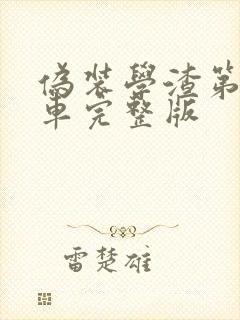 偽装學渣第
車完整版
雷楚雄